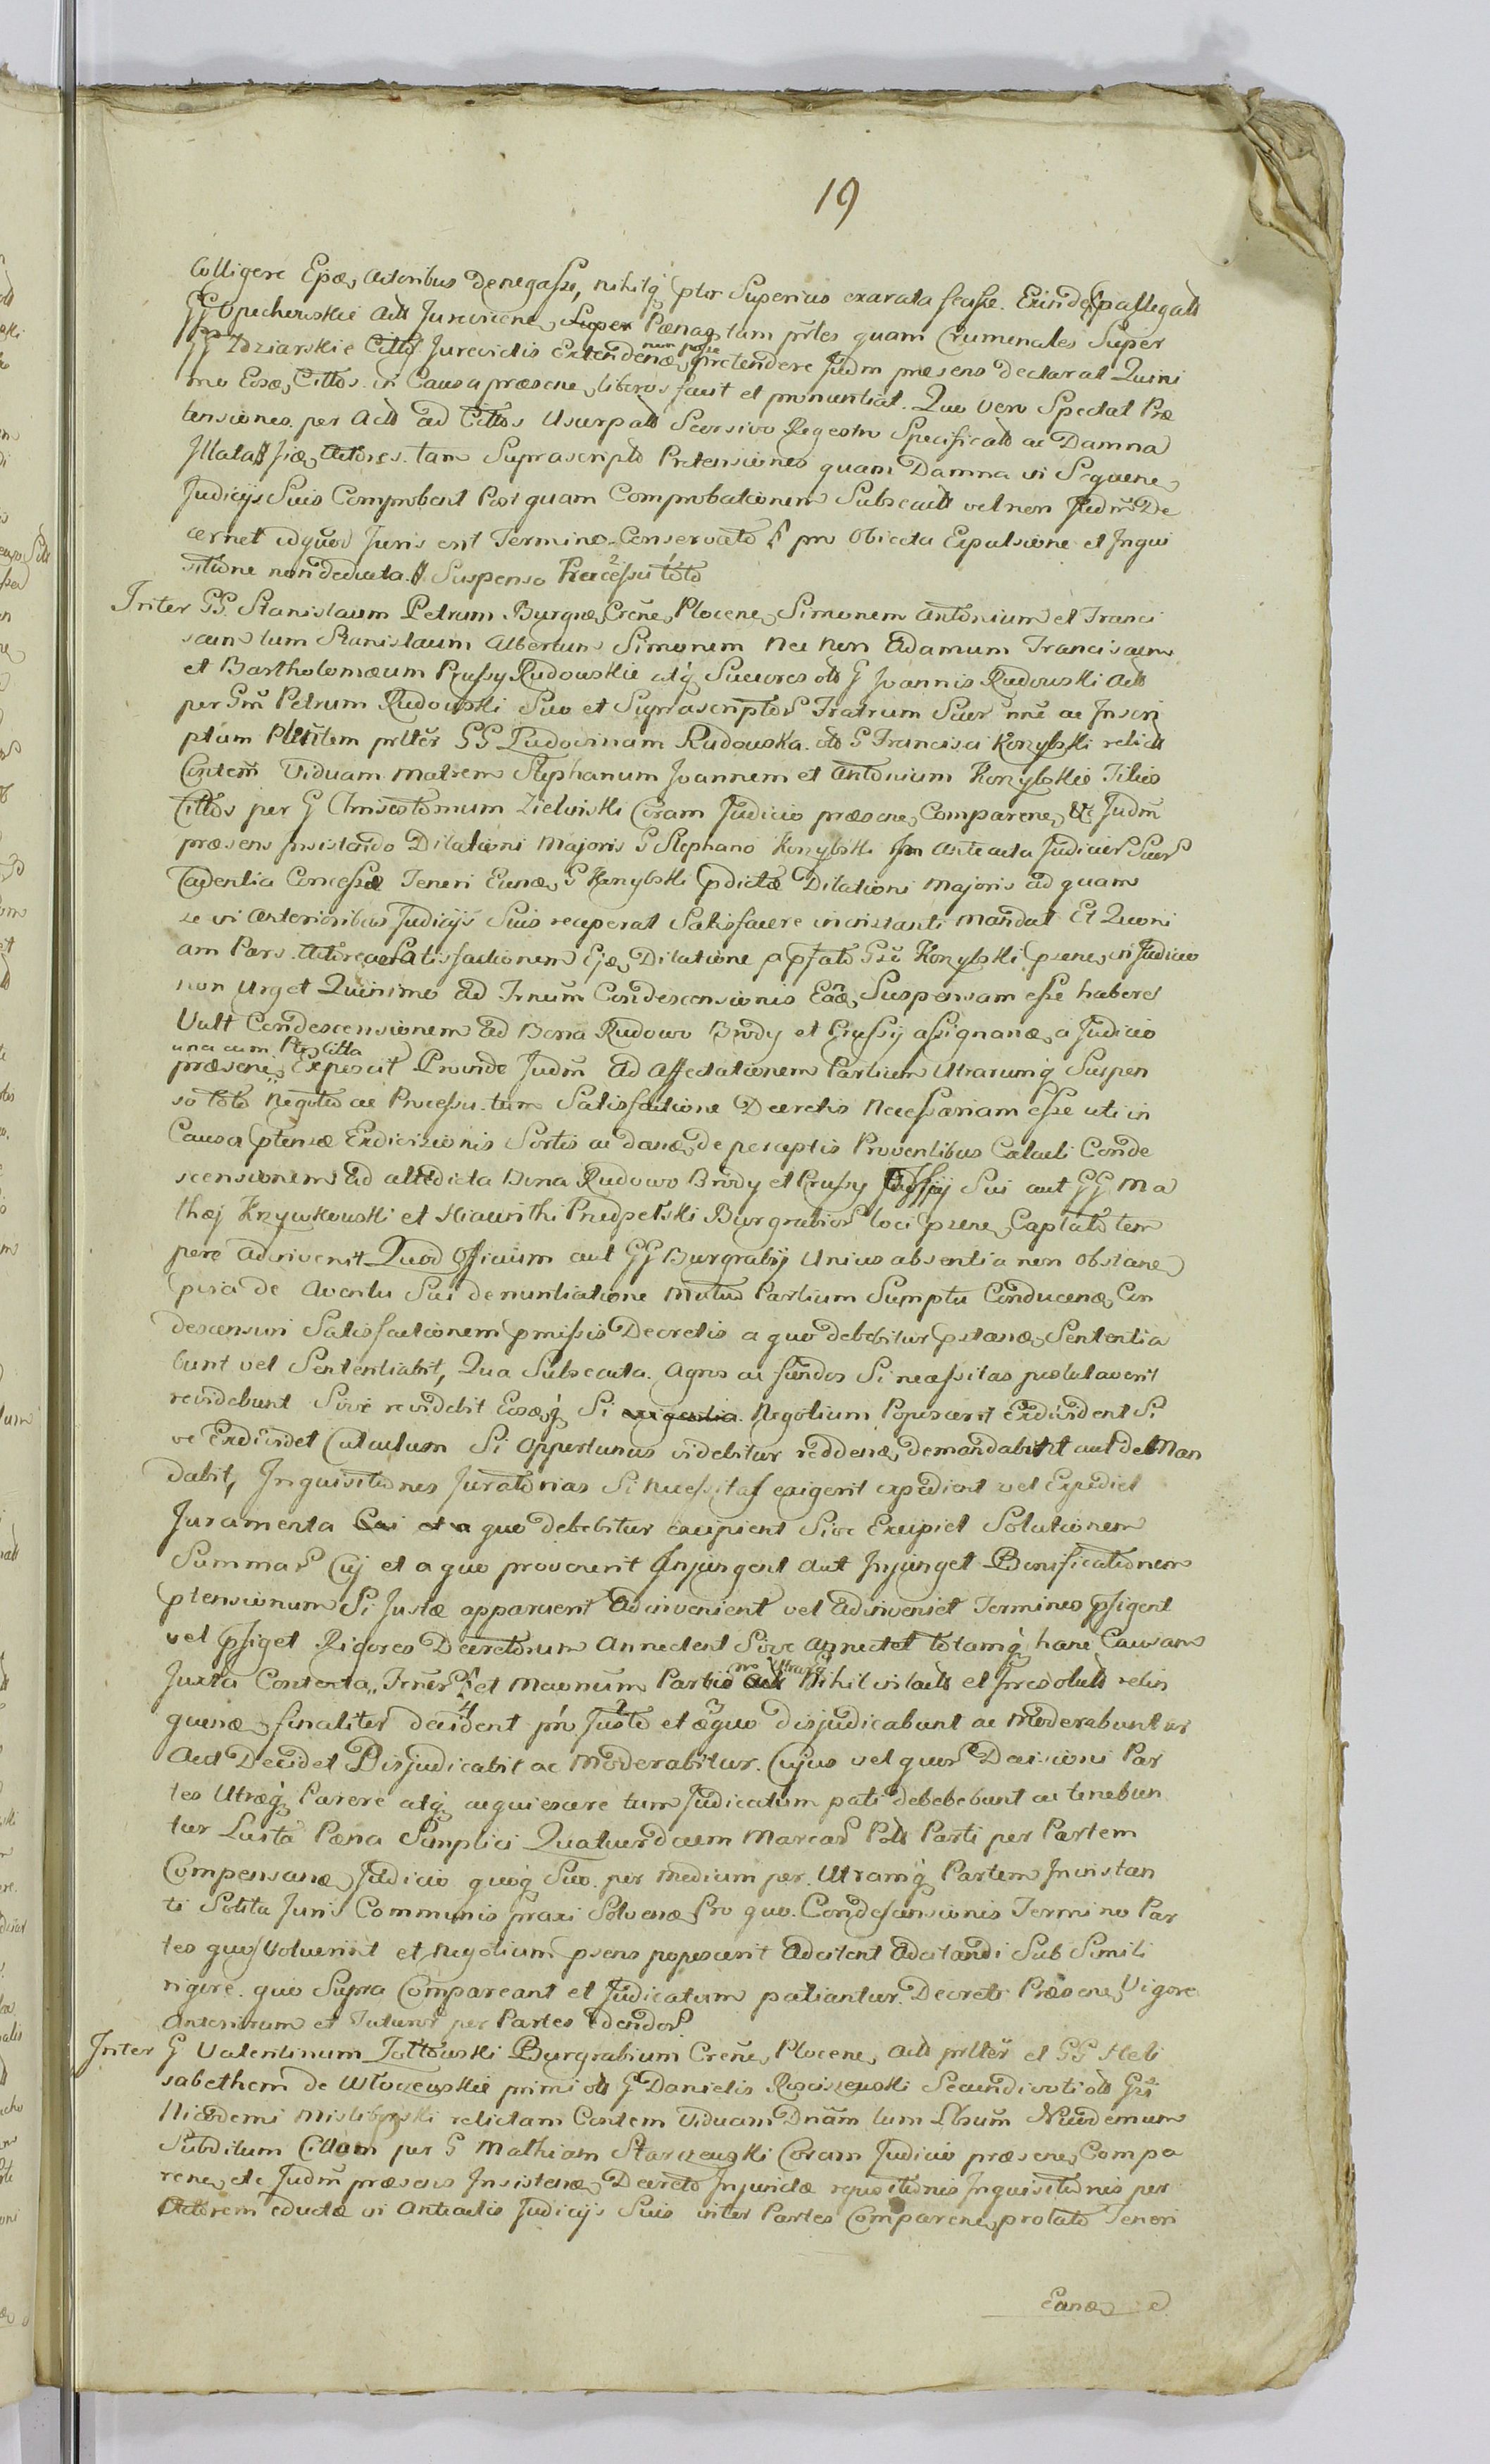 19
Colligere Ejsdē Actoribus denegasse, nihilq; ptr Superius exarata fecisse. Exinde Spallegatis
GG Opechowskie Act Jurevicene, Super Pænas tam prles quam Crumenales Super
GG Zdziarskie Citts Jurevictis Extendenæ, non posse prætendere Judm præsens declarat Quini
mo Eosdē Cittos in Causa præsene, liberos facit et pronuntiat. Quo vero Spectat Præ
tensiones per Act ad Cittos Usurpat Seorsivo Regestro Specificat ac Damna
Illata Actores tam Suprascripto Pretensiones quam Damna in Sequene,
Judicijs Suis Comprobent Post quam Comprobationem Subsecut vel non Judm De
cernet idquod Juris erit Termino Conservato pro Objecta Expulsione et Inqui
sitione non deducta. Suspenso Processu toto
Inter GG Stanislaum Petrum Burgræ, Crēne, Plocene, Simonem Antonium et Franci
scum tum Stanislaum Albertum Simonem Nec Non Adamum Franciscum
et Bartholomæum Prussy Rudowskie atq; Sucores olt G Joannis Rudowski Act
per Gm Petrum Rudowski Suo et Suprascriptor Fratrum Suor nne ac Inscri
ptum Pltntem prlter GG Ludovinam Rudowska olt G Francisci Konylski relict
Contem Viduam matrem Stephanum Joannem et Antonium Konylskie Filios
Cittos per G Chrisostomum Zielinski Coram Judicio præsene, Comparene, &c Judm
præsens insistendo Dilationi Majoris G Stephano Konylski in Anteacta Judicior Suor
Cadentia Concessæ Teneri Eundē G Konylski pdictæ Dilationi Majoris ad quam
se in Anterioribus Judicijs Suis receperat Satisfacere in instanti mandat Et Quoni
am Pars Actorea Satisfactionem Ejsdē Dilatione a pfato Gse Konylski psene, in Judicio
non Urget Quinimo ad Trnum Condescensionis Eandē Suspensam esse habere
Vult Condescensionem ad Bona Rudowo Brody et Prussy assignanæ, a Judicio
una cum Pte Citta
præsene, Exposcit Proinde Judm ad Affectationem Partium Utrarumq; Suspen
so toto Negotio ac Processu tum Satisfactione Decretis Necessariam esse uti in
Causa ptensæ Exdivisionis Sortis ac danæ, de perceptis Proventibus Calculi Conde
scensionem ad attedicta Bona Rudowo Brody et Prussy Officij Sui aut GG Ma
thæj Krzywkowski et Hiacinthi Przedpelski Burgrabior loci psene, Captato tem
pore adinvenit Quod Officium aut GG Burgrabij Unius absentia non obstane,
pvia de Aventu Sui denuntiatione Mutuo Partium Sumptu Conducenæ, Con
descensuri Satisfactionem pmissis Decretis a quo debebitur pstanæ, Sententia
bunt vel Sententiabit, Qua Subsecuta Agros ac fundos Si necessitas postulaverit
revidebunt Sive revidebit Eosdq; Si exigentia Negotium Poposcerit Exdivident Si
ve Exdividet Calculum Si Opportunus videbitur reddenæ, demandabunt aut deMan
dabit, Inquisitiones Juratorias Si Necessitas exigerit expedient vel Expediet
Juramenta Cui et a quo debebitur excipient Sive Excipiet Solutionem
Summar Cuj et a quo provenerit Injungent aut Injunget Bonificationem
ptensionum Si Justæ apparuerint Adinvenient vel Adinveniet Terminos pfigent
vel pfiget Rigores Decretorum Annectent Sive Annectet totamq; hanc Causam
Juxta Contenta Trner et Maonum Partis utriusq; Nihil in lact et Iresolut relin
quenæ, finaliter decident pro Justo et æquo disjudicabunt ac Moderabuntur
Aut Decidet Disjudicabit ac Moderabitur. Cujus vel quor Decisioni Par
tes Utræq; Parere atq; acquiescere tum Judicatum pati debebebunt ac tenebun
tur Lucta Pæna Simplici Quatuordecim Marcar Pols Parti per Partem
Compensanæ, Judicio quoq; Suo per medium per Utramq; Partem In instan
ti Solita Juris Communis praxi Solvenæ, Pro quo Condescensionis Termino Par
tes quos Voluerint et Negotium psens poposcerit Adcitent Adcitandi Sub Simili
rigore quo Supra Compareant et Judicatum patiantur. Decreti Præsene, Vigore
Anteriorum et Futuror per Partes edendor
Inter G Valentinum Zottowski Burgrabium Crēne, Plocene, Act prlter et GG Heli
sabethem de Wloczewskie primi olt G Danielis Rosciszewski Secundi voti olt Gsi
Nicodemi Misliborski relictam Contem Viduam Dnam tum Lbsum Nicodemum
Subditum Cittum per G Mathiam Starczewski Coram Judicio præsene, Compa
rene, etc Judm præsens Insistenæ, Decreto Injunctæ repositionis Inquisitionis per
Actorem eductæ in Anteactis Judicijs Suis inter Partes Comparene, prolato Teneri
Eandē